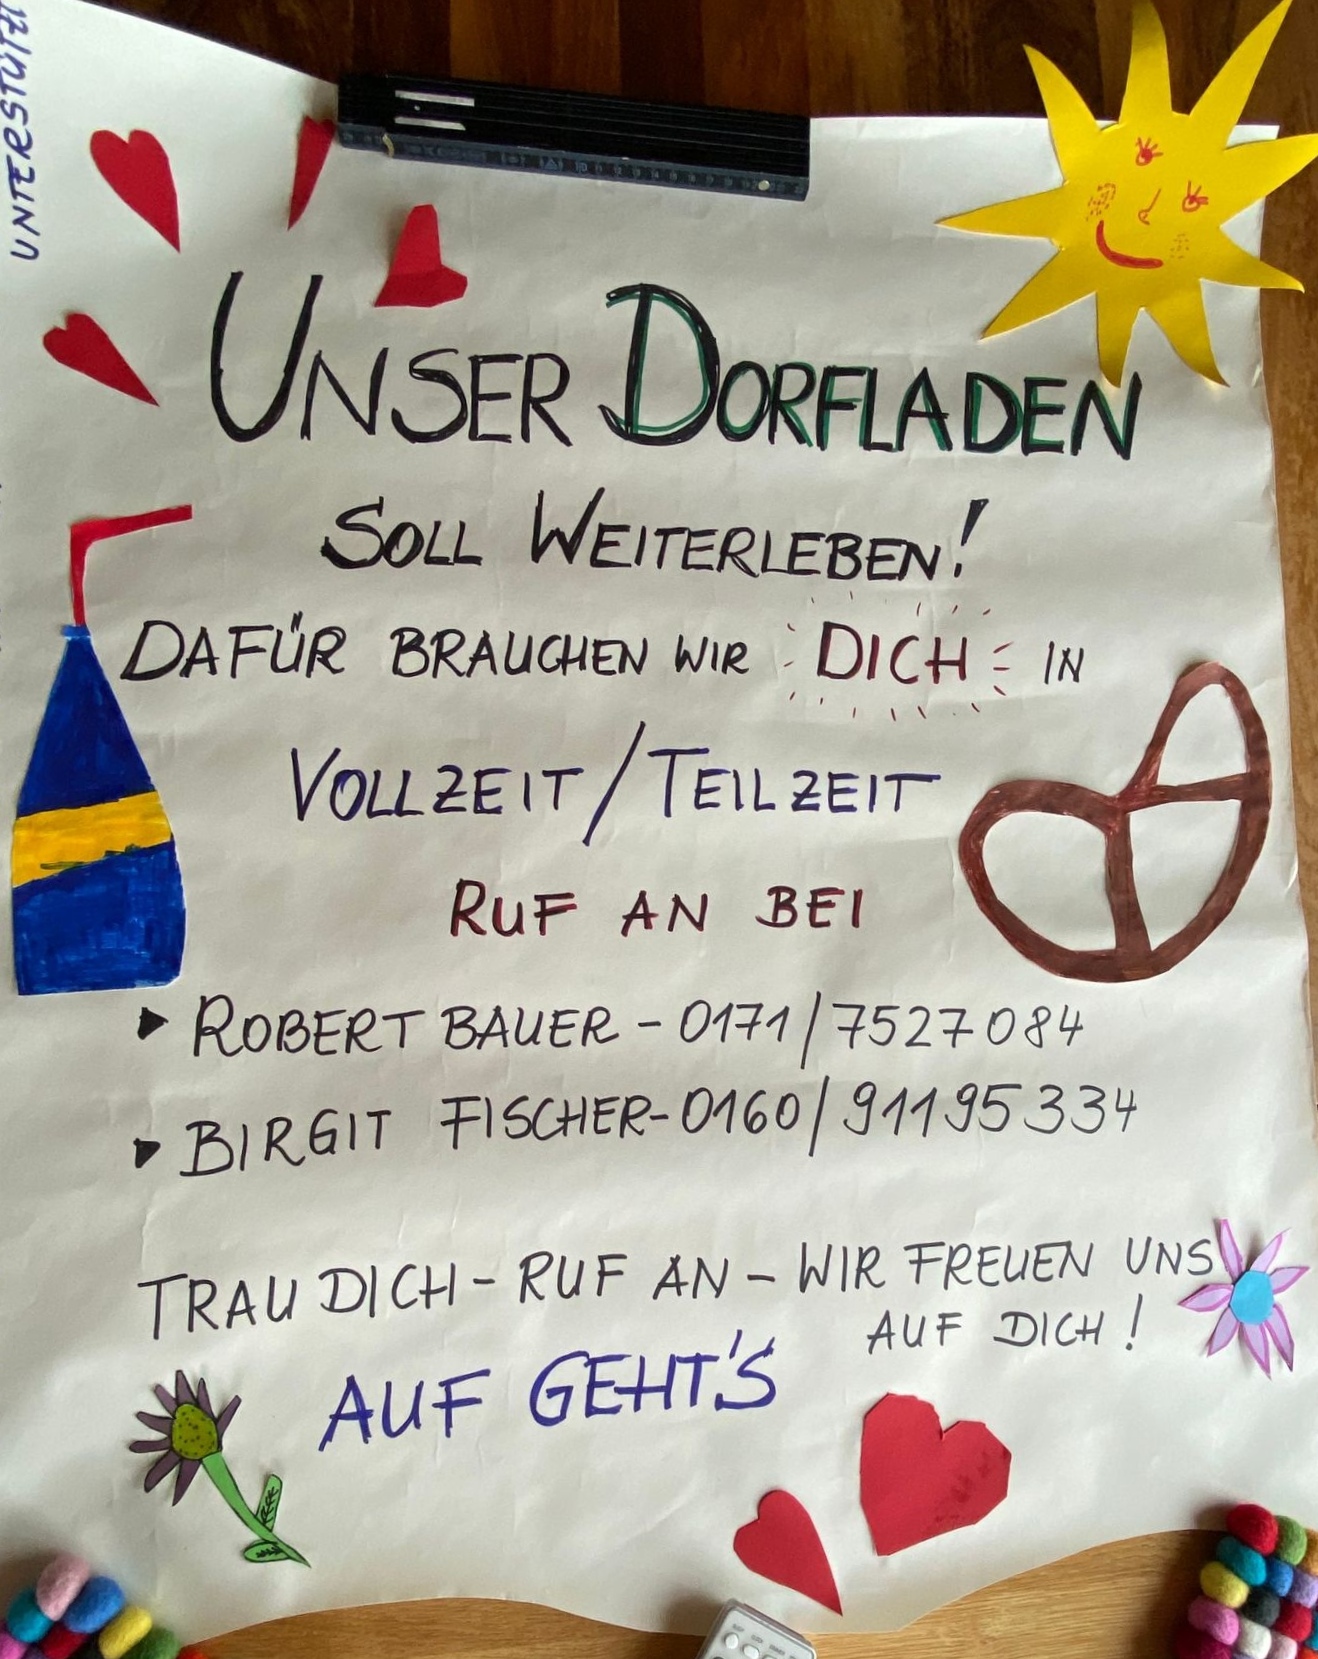 UNTERSTÜTZ
UNSER DORFLADEN
SOLL WEITERLEBEN!
DAFÜR BRAUCHEN WIR DICH IN
VOLLZEIT/TEILZEIT
RUF AN BEI
▸ ROBERT BAUER - 0171/7527084
▸ BIRGIT FISCHER - 0160/91195334
TRAU DICH - RUF AN - WIR FREUEN UNS
AUF DICH!
AUF GEHT'S